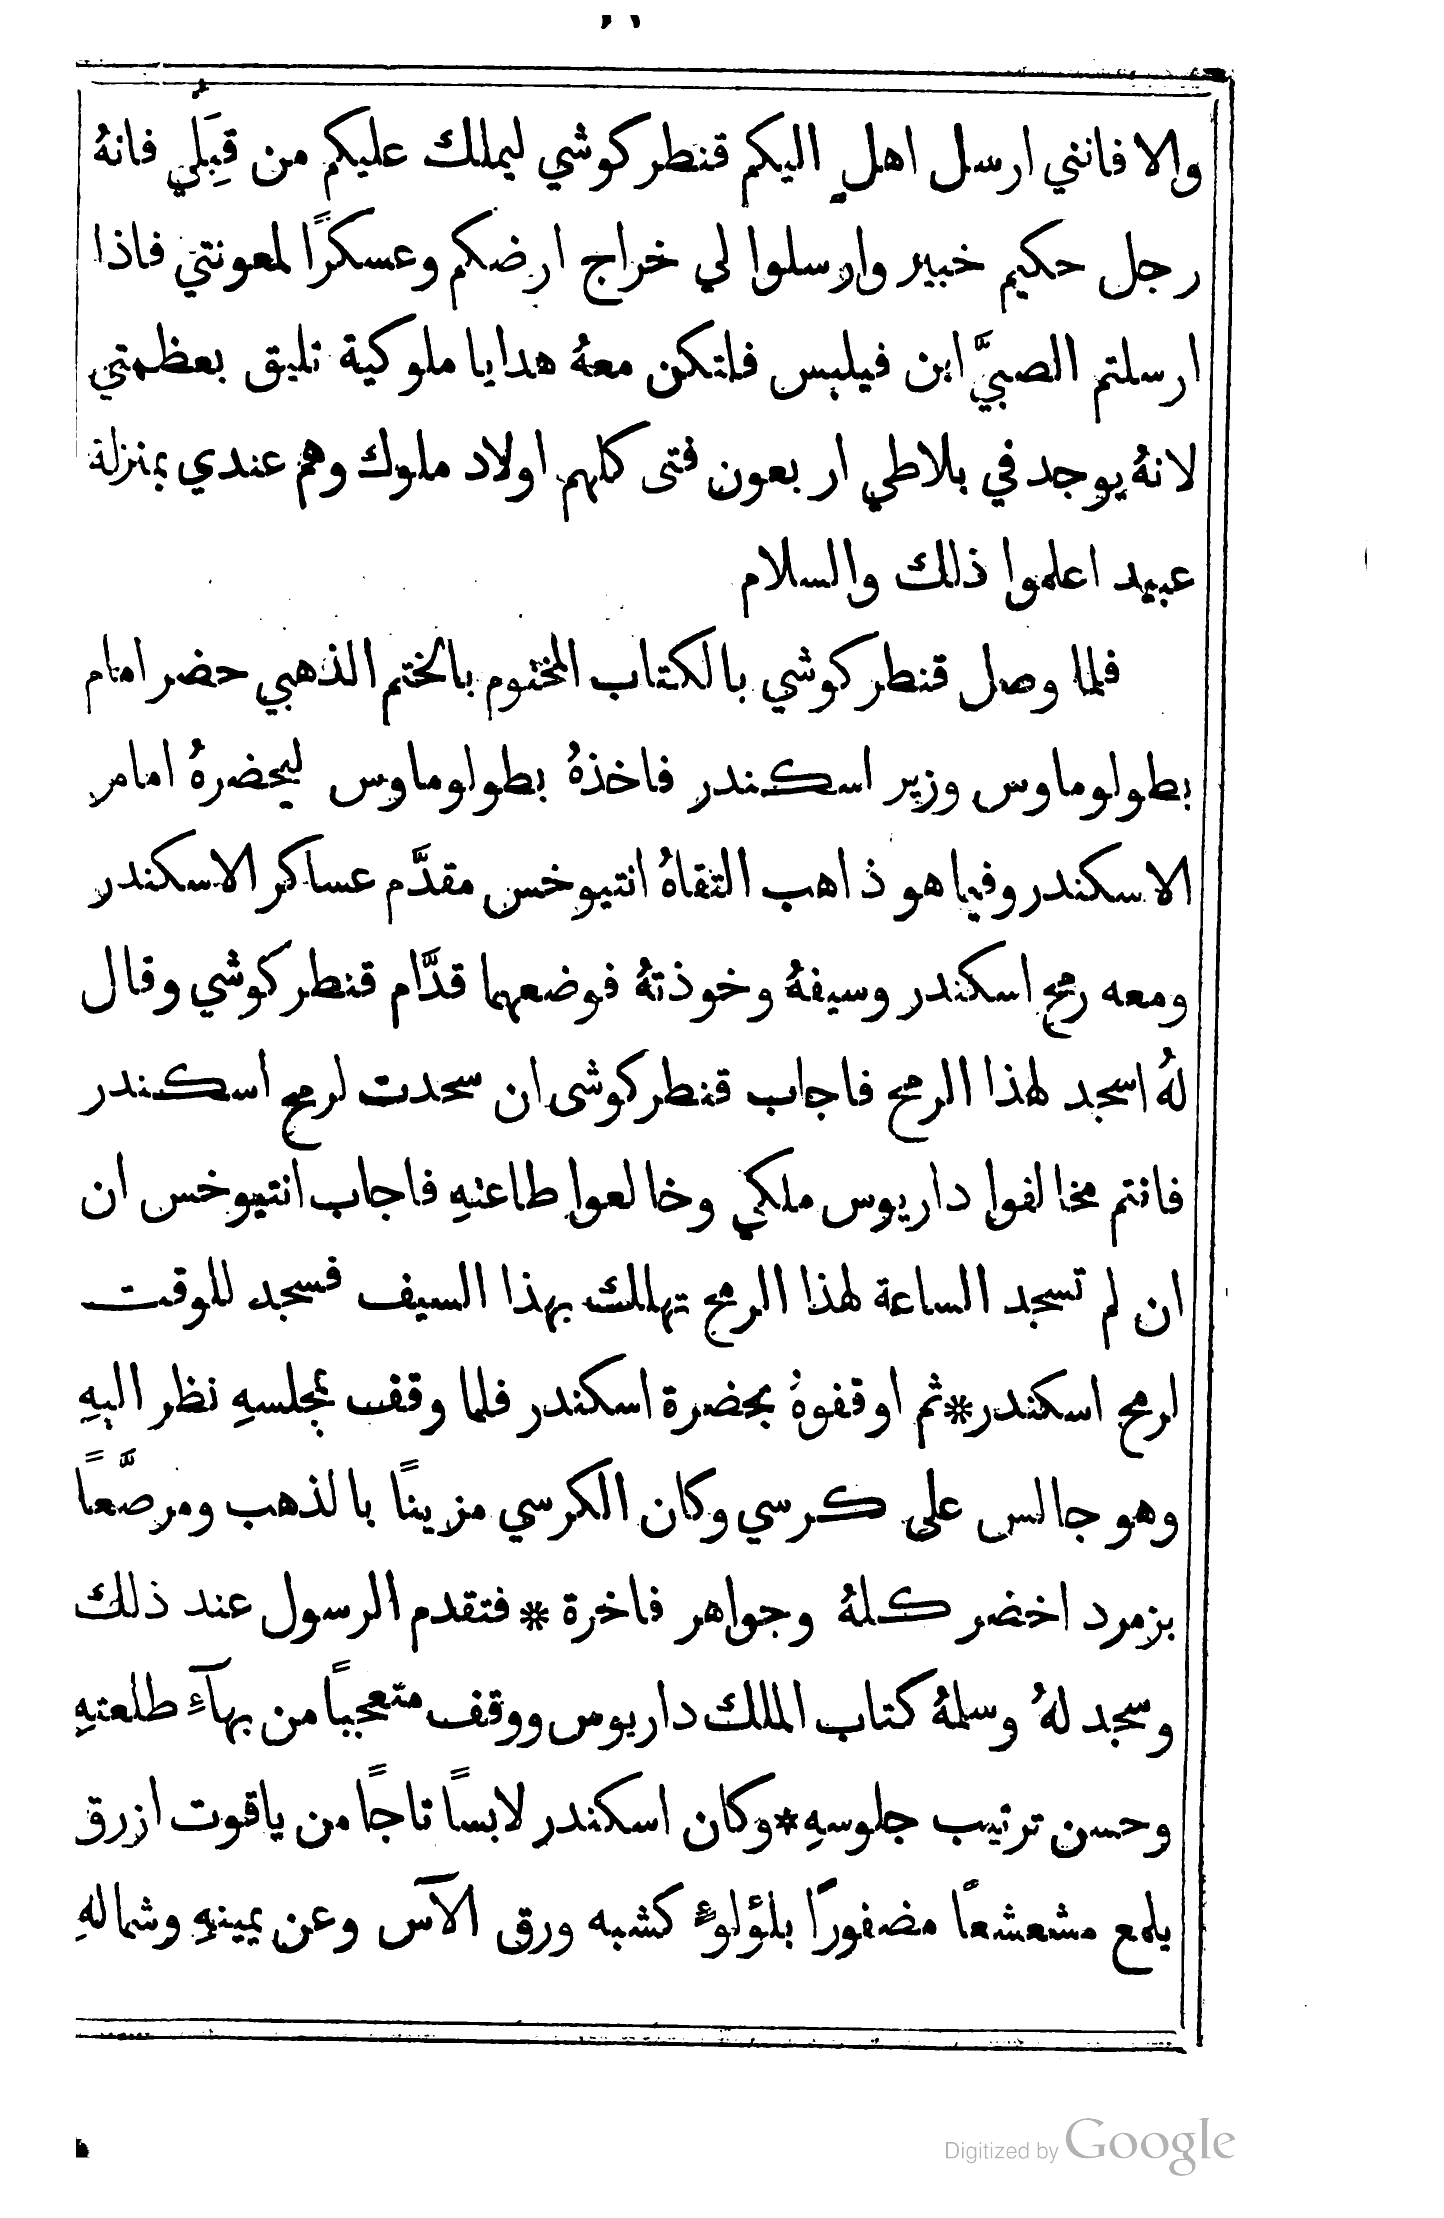 والا فانني ارسل اهل اليكم قنطركوشي ليملك عليكم من قِبَلي فانهُ
رجل حكيم خبير وارسلوا لي خراج ارضكم وعسكرًا لمعونتي فاذا
ارسلتم الصبيَّ ابن فيلبس فلتكن معهُ هدايا ملوكية تليق بعظمتي
لانهُ يوجد في بلاطي اربعون فتى كلهم اولاد ملوك وهم عندي بمنزلة
عبيد اعلموا ذلك والسلام
فلما وصل قنطركوشي بالكتاب المختوم بالختم الذهبي حضر امام
بطولوماوس وزير اسكندر فاخذهُ بطولوماوس ليحضرهُ امام
الاسكندر وفيما هو ذاهب التقاهُ انتيوخس مقدَّم عساكر الاسكندر
ومعه رمح اسكندر وسيفهُ وخوذتهُ فوضعهما قدَّام قنطركوشي وقال
لهُ اسجد لهذا الرمح فاجاب قنطركوشى ان سجدت لرمح اسكندر
فانتم مخالفوا داريوس ملكي وخالعوا طاعتهِ فاجاب انتيوخس ان
ان لم تسجد الساعة لهذا الرمح تهلك بهذا السيف فسجد للوقت
لرمح اسكندر * ثم اوقفوهُ بحضرة اسكندر فلما وقف بمجلسهِ نظر اليهِ
وهو جالس على كرسي وكان الكرسي مزينًا بالذهب ومرصَّعًا
بزمرد اخضر كلهُ وجواهر فاخرة * فتقدم الرسول عند ذلك
وسجد لهُ وسلمهُ كتاب الملك داريوس ووقف متعجبًا من بهآءِ طلعتهِ
وحسن ترتيب جلوسهِ * وكان اسكندر لابسًا تاجًا من ياقوت ازرق
يلمع مشعشعًا مضفورًا بلؤلوءٍ كشبه ورق الآس وعن يمينهِ وشمالهِ
Digitized by Google